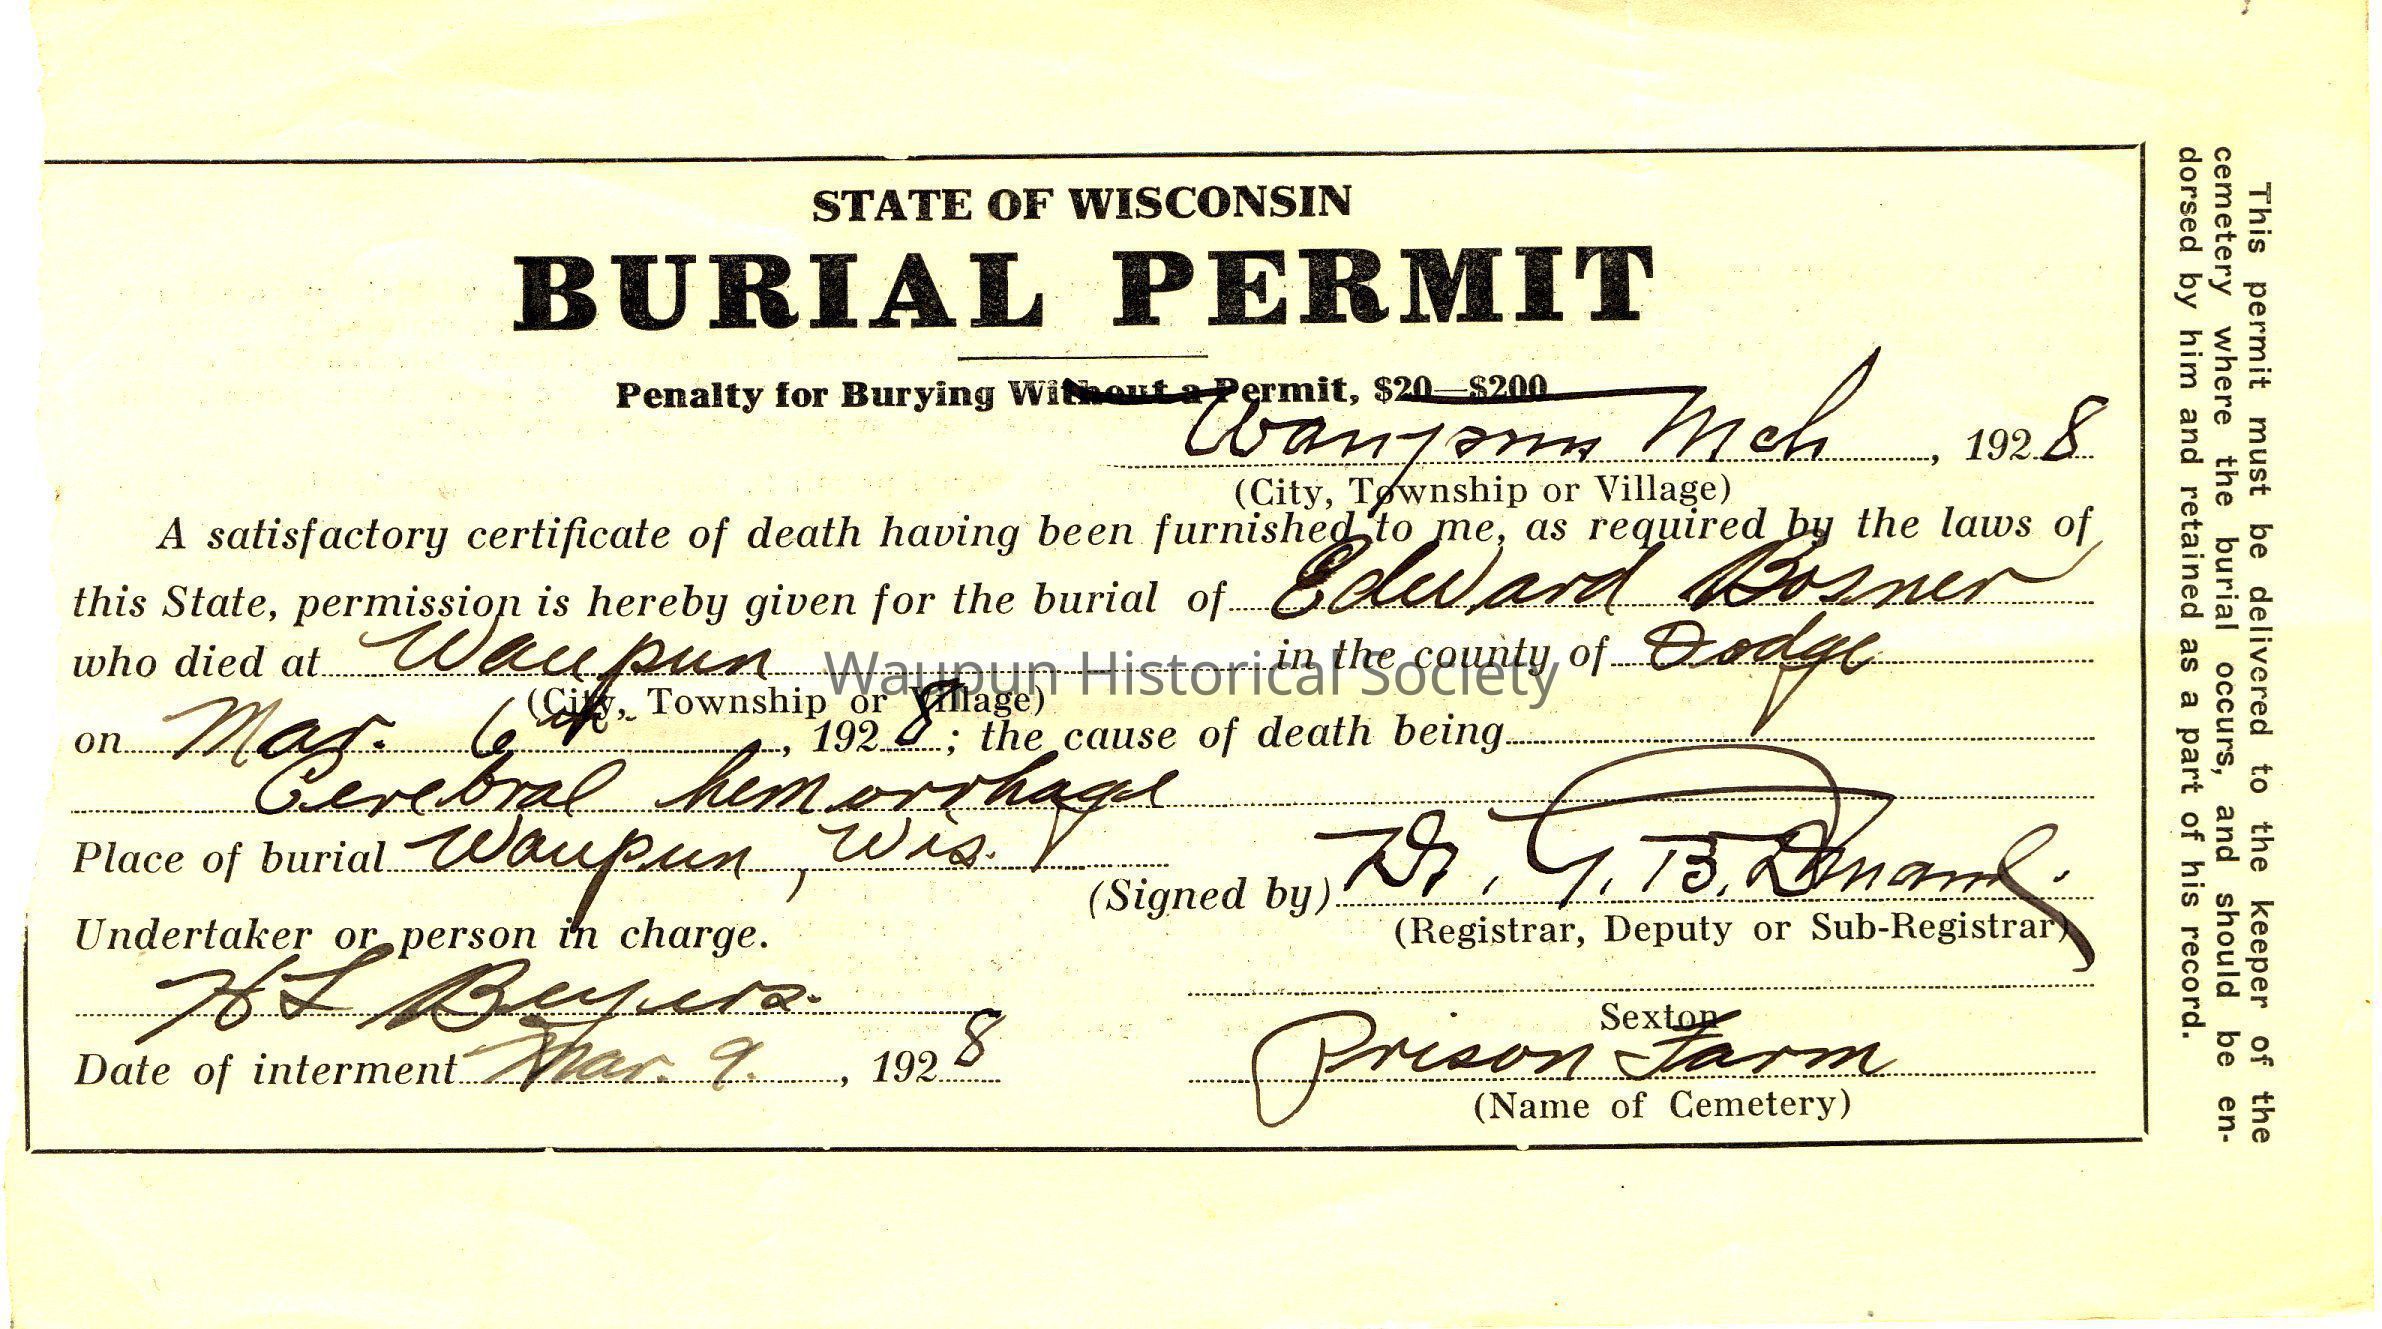 STATE OF WISCONSIN
BURIAL PERMIT
Penalty for Burying Without a Permit, $20—$200
Waupun Mch , 1928
(City, Township or Village)
A satisfactory certificate of death having been furnished to me, as required by the laws of
this State, permission is hereby given for the burial of Edward Bosner
who died at Waupun in the county of Dodge
(City, Township or Village)
on Mar. 6th , 1928; the cause of death being
Cerebral hemorrhage
Place of burial Waupun, Wis.
(Signed by) Dr.
(Registrar, Deputy or Sub-Registrar)
Undertaker or person in charge.
H L Beyers.
Sexton
Date of interment Mar. 9. , 1928
Prison Farm
(Name of Cemetery)
This permit must be delivered to the keeper of the
cemetery where the burial occurs, and should be en-
dorsed by him and retained as a part of his record.
Waupun Historical Society